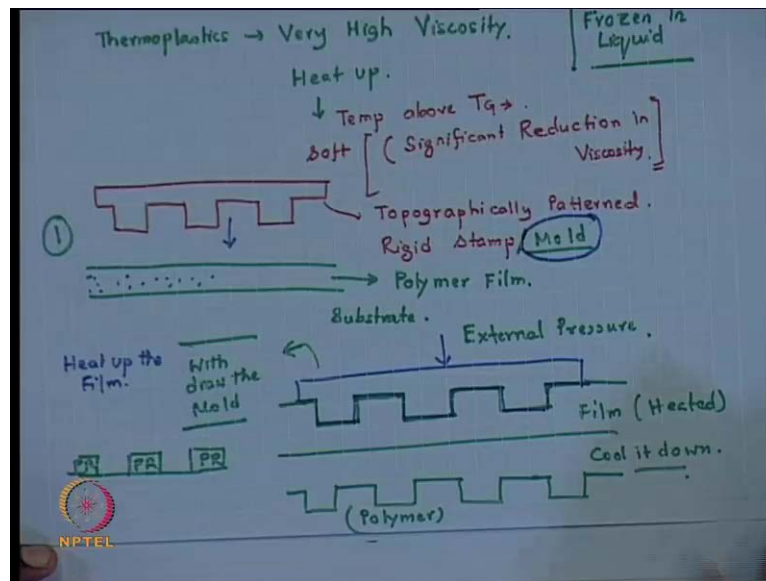 Thermoplastics → Very High Viscosity.
Frozen in
Liquid
Heat up.
↓ Temp above TG →.
Soft [ ( Significant Reduction in
Viscosity. ]
① → Topographically Patterned.
Rigid Stamp/Mold
→ Polymer Film.
Substrate.
External Pressure.
Heat up the
Film.
With
draw the
Mold
Film (Heated)
Cool it down.
PR PR PR
(Polymer)
NPTEL